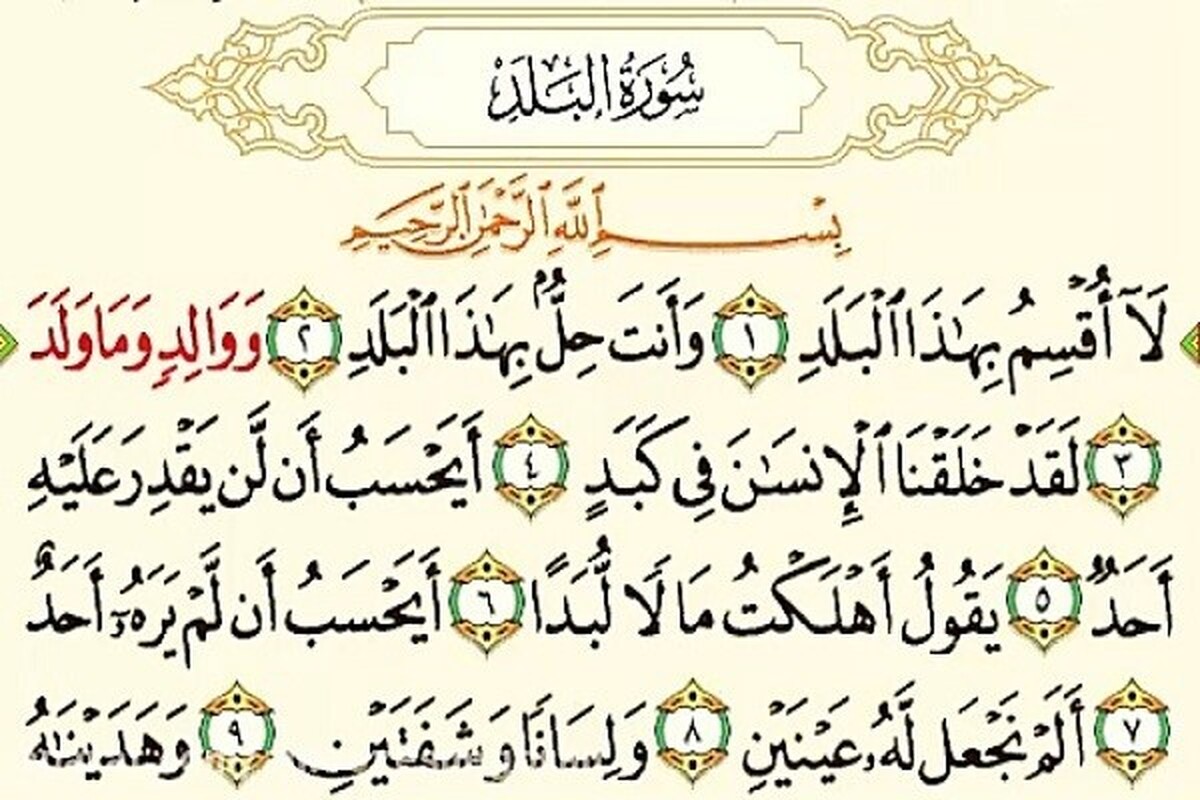 سُورَةُ البَلَدِ
بِسْمِ ٱللَّهِ ٱلرَّحْمَٰنِ ٱلرَّحِيمِ
لَآ أُقْسِمُ بِهَٰذَا ٱلْبَلَدِ ١ وَأَنتَ حِلٌّۢ بِهَٰذَا ٱلْبَلَدِ ٢ وَوَالِدٍ وَمَا وَلَدَ
٣ لَقَدْ خَلَقْنَا ٱلْإِنسَٰنَ فِى كَبَدٍ ٤ أَيَحْسَبُ أَن لَّن يَقْدِرَ عَلَيْهِ
أَحَدٌ ٥ يَقُولُ أَهْلَكْتُ مَالًا لُّبَدًا ٦ أَيَحْسَبُ أَن لَّمْ يَرَهُۥٓ أَحَدٌ
٧ أَلَمْ نَجْعَل لَّهُۥ عَيْنَيْنِ ٨ وَلِسَانًا وَشَفَتَيْنِ ٩ وَهَدَيْنَٰهُ